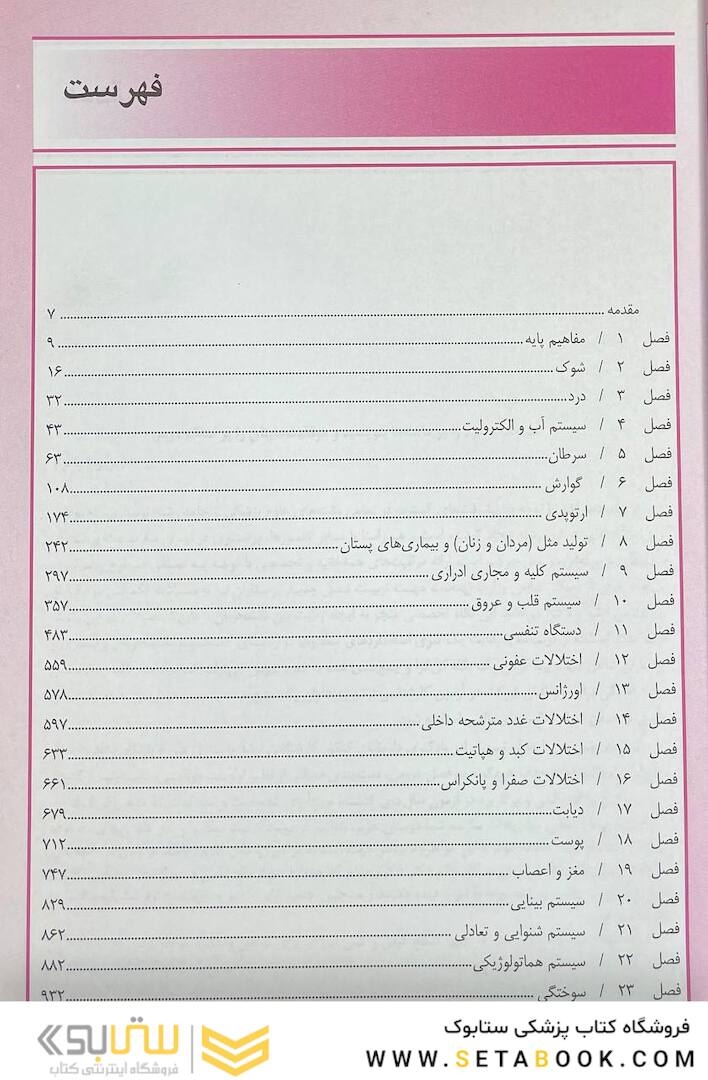 فهرست
مقدمه ........ ۷
فصل ۱ / مفاهیم پایه ........ ۹
فصل ۲ / شوک ........ ۱۶
فصل ۳ / درد ........ ۳۲
فصل ۴ / سیستم آب و الکترولیت ........ ۴۳
فصل ۵ / سرطان ........ ۶۳
فصل ۶ / گوارش ........ ۱۰۸
فصل ۷ / ارتوپدی ........ ۱۷۴
فصل ۸ / تولید مثل (مردان و زنان) و بیماری‌های پستان ........ ۲۴۲
فصل ۹ / سیستم کلیه و مجاری ادراری ........ ۲۹۷
فصل ۱۰ / سیستم قلب و عروق ........ ۳۵۷
فصل ۱۱ / دستگاه تنفسی ........ ۴۸۳
فصل ۱۲ / اختلالات عفونی ........ ۵۵۹
فصل ۱۳ / اورژانس ........ ۵۷۸
فصل ۱۴ / اختلالات غدد مترشحه داخلی ........ ۵۹۷
فصل ۱۵ / اختلالات کبد و هپاتیت ........ ۶۳۳
فصل ۱۶ / اختلالات صفرا و پانکراس ........ ۶۶۱
فصل ۱۷ / دیابت ........ ۶۷۹
فصل ۱۸ / پوست ........ ۷۱۲
فصل ۱۹ / مغز و اعصاب ........ ۷۴۷
فصل ۲۰ / سیستم بینایی ........ ۸۲۹
فصل ۲۱ / سیستم شنوایی و تعادلی ........ ۸۶۲
فصل ۲۲ / سیستم هماتولوژیکی ........ ۸۸۲
فصل ۲۳ / سوختگی ........ ۹۳۲
فروشگاه کتاب پزشکی ستابوک
WWW.SETABOOK.COM
ستابوک
فروشگاه اینترنتی کتاب